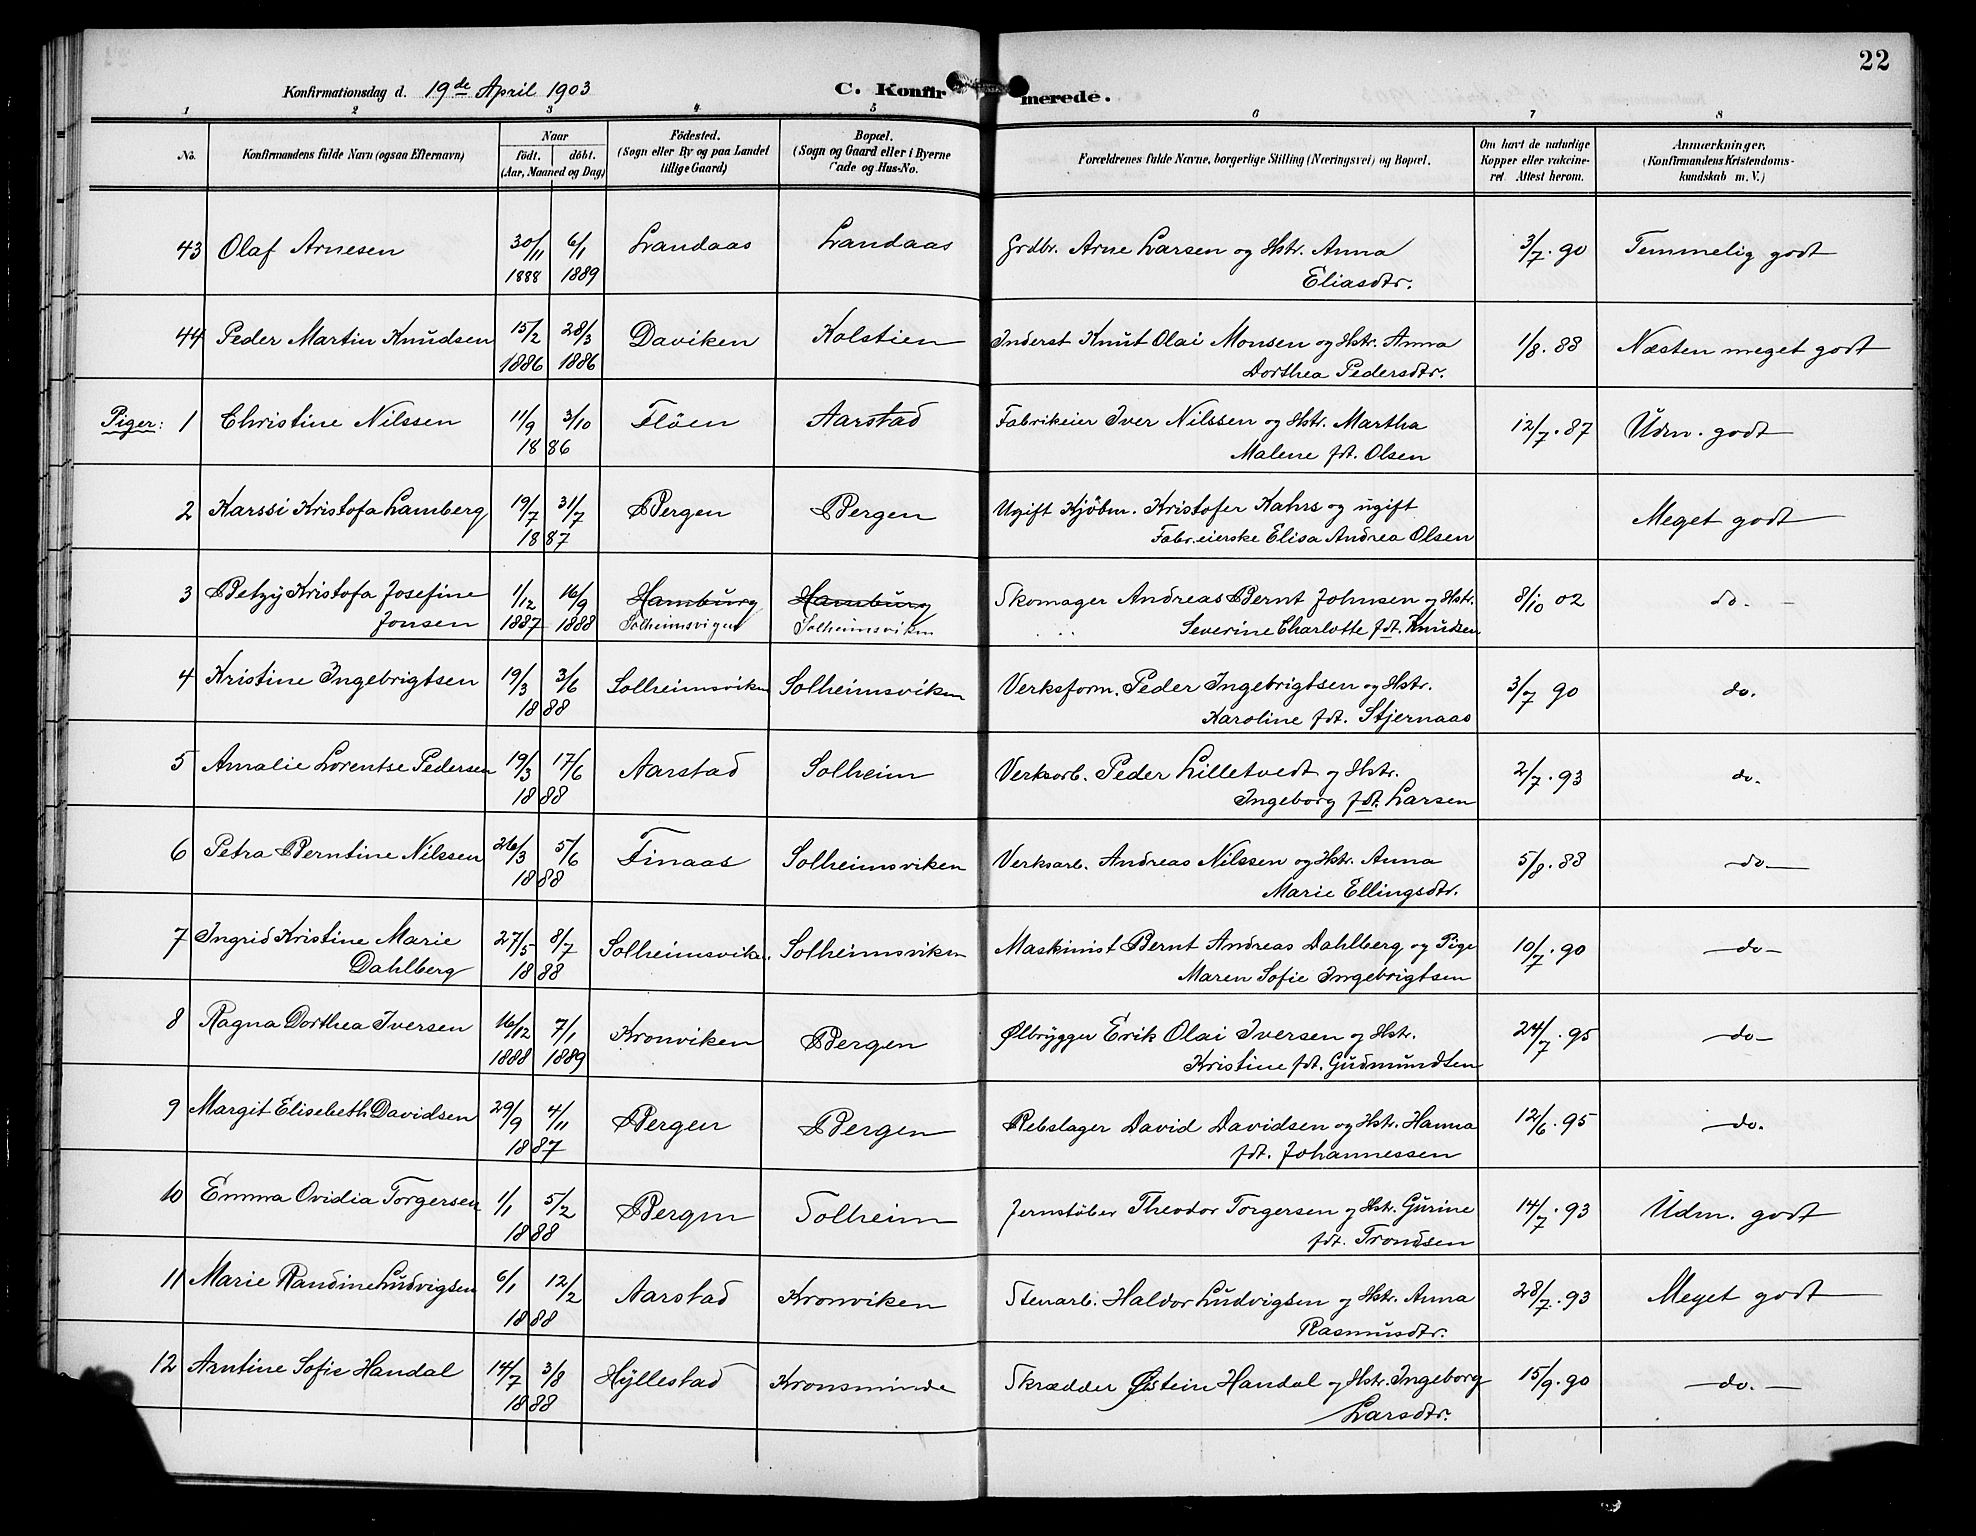 22
Konfirmationsdag d. 19de April 1903 C. Konfirmerede.
1 2 3 4 5 6 7 8
No. Konfirmandens fulde Navn (ogsaa Efternavn) Naar födt. döbt. (Aar, Maaned og Dag) Födested. (Sogn eller By og paa Landet tillige Gaard) Bopæl. (Sogn og Gaard eller i Byerne Gade og Hus-No. Forældrenes fulde Navne, borgerlige Stilling (Næringsvei) og Bopæl. Om havt de naturlige Kopper eller vakcineret. Attest herom. Anmærkninger, (Konfirmandens Kristendomskundskab m. V.)
43 Olaf Arnesen 30/11 6/1 Landaas Landaas Grdbr. Arne Larsen og Hstr. Anna 3/7. 90 Temmelig godt
1888 1889 Eliasdtr.
44 Peder Martin Knudsen 15/2 28/3 Daviken Kolstien Inderst Knut Olai Monsen og Hstr. Anna 1/8. 88 Næsten meget godt
1886 1886 Dorthea Pedersdtr.
Piger: 1 Christine Nilssen 11/9 3/10 Flöen Aarstad Fabrikeier Iver Nilssen og Hstr. Martha 12/7. 87 Udm. godt
1886 Malene fdt. Olsen
2 Karssi Kristofa Lamberg 19/7 31/7 Bergen Bergen Ugift Kjöbm. Kristofer Kahrs og ugift Meget godt
1887 Fabr.eierske Elisa Andrea Olsen
3 Betzy Kristofa Josefine 1/12 16/9 Hamburg Hamburg Skomager Andreas Bernt Johnsen og Hstr. 8/10 02 do. -
Jonsen 1887 1888 Solheimsvigen Solheimsviken Severine Charlotte fdt. Knudsen
4 Kristine Ingebrigtsen 19/3 3/6 Solheimsviken Solheimsviken Verksform. Peder Ingebrigtsen og Hstr. 3/7 90 do.
1888 Karoline fdt. Stjernaas
5 Amalie Lorentse Pedersen 19/3 17/6 Aarstad Solheim Verksarb. Peder Lilletvedt og Hstr. 2/7. 93 do.
1888 Ingeborg fdt. Larsen
6 Petra Berntine Nilssen 26/3 5/6 Finaas Solheimsviken Verksarb. Andreas Nilssen og Hstr. Anna 5/8. 88 do
1888 Marie Ellingsdtr.
7 Ingrid Kristine Marie 27/5 8/7 Solheimsviken Solheimsviken Maskinist Bernt Andreas Dahlberg og Pige 10/7. 90 do
Dahlberg 1888 Maren Sofie Ingebrigtsen
8 Ragna Dorthea Iversen 16/12 7/1 Kronviken Bergen Ølbrygger Erik Olai Iversen og Hstr. 24/7. 95 do
1888 1889 Kristine fdt. Gudmundsen
9 Margit Elisebeth Davidsen 29/9 4/11 Bergen Bergen Rebslager David Davidsen og Hstr. Hanna 12/6. 95 do.
1887 fdt. Johannessen
10 Emma Ovidia Torgersen 1/1 5/2 Bergen Solheim Jernstöber Theodor Torgersen og Hstr. Gurine 14/7. 93 Udm. godt
1888 fdt. Trondsen
11 Marie Randine Ludvigsen 6/1 12/2 Aarstad Kronviken Stenarb. Haldor Ludvigsen og Hstr. Anna 28/7. 93 Meget godt
1888 Rasmusdtr.
12 Arntine Sofie Handal 14/7 3/8 Hyllestad Kronsminde Skrædder Øistein Handal og Hstr. Ingeborg 15/9. 90 do.
1888 Larsdtr.